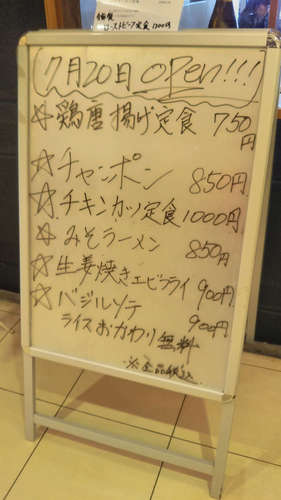 ローストビーフ定食 1200円
7月20日 open!!!
☆鶏唐揚げ定食 750円
☆チャンポン 850円
☆チキンカツ定食 1000円
☆みそラーメン 850円
☆生姜焼きエビフライ 900円
☆バジルソテ 900円
ライスおかわり無料
※全品税込